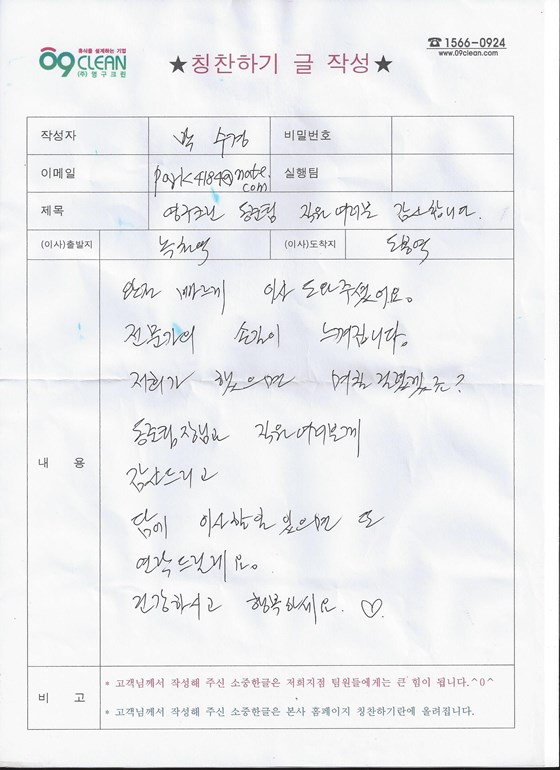 휴식을 설계하는 기업
09 CLEAN
(주)영구크린
★칭찬하기 글 작성★
☎ 1566-0924
www.09clean.com
작성자 박 수경 비밀번호
이메일 park4184@nate.com 실행팀
제목 영구크린 동훈팀 직원여러분 감사합니다.
(이사)출발지 녹천역 (이사)도착지 도봉역
내 용
완전 빠르게 이사 도와주셨어요.
전문가의 손길이 느껴집니다.
저희가 했으면 며칠 걸렸겠죠?
팀장님과 직원여러분께
감사드리고
담에 이사할일 있으면 또
연락드릴게요.
건강하시고 행복하세요. ♡.
비 고
* 고객님께서 작성해 주신 소중한글은 저희지점 팀원들에게는 큰 힘이 됩니다.^0^
* 고객님께서 작성해 주신 소중한글은 본사 홈페이지 칭찬하기란에 올려집니다.